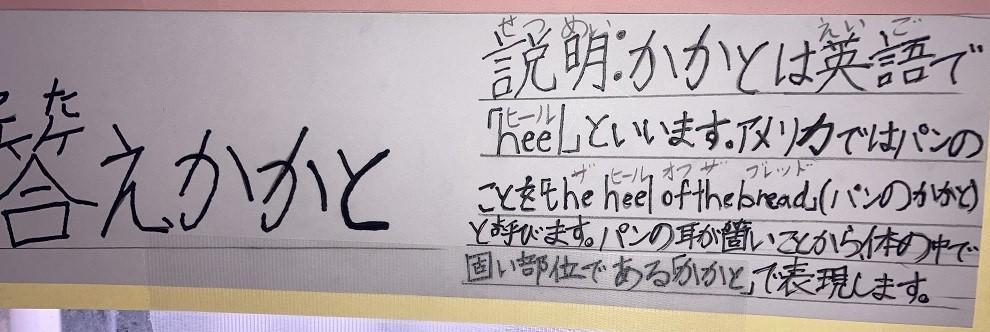 た
答えかかと
せつめい えいご
説明:かかとは英語で
ヒール
「heel」といいます。アメリカではパンの
ザ ヒール オフ ザ ブレッド
ことを「the heel of the bread」(パンのかかと)
と呼びます。パンの耳が箇いことから、体の中で
固い部位である「かかと」で表現します。